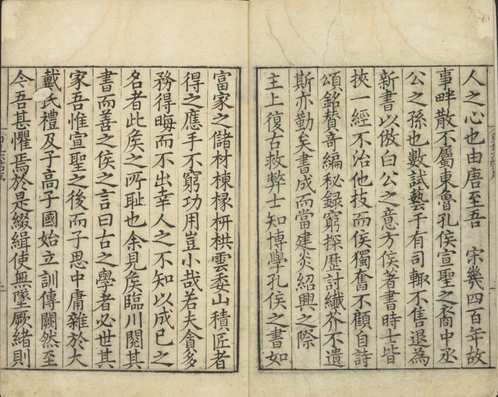 人之心也由唐至吾　宋幾四百年故
事畔散不屬東魯孔侯宣聖之裔中丞
公之孫也數試藝于有司輒不售退為
新書以倣白公之意方侯著書時士皆
挾一經不治他技而侯獨奮不顧自詩
頌銘贊奇編秘錄窮探歷討纎芥不遺
斯亦勤矣書成而當建炎紹興之際
主上復古救弊士知博學孔侯之書如
富家之儲材棟椽枅栱雲委山積匠者
得之應手不窮功用豈小哉若夫貪多
務得晦而不出幸人之不知以成已之
名者此矦之所恥也余見矦臨川閱其
書而善之矦之言曰古之學者必世其
家吾惟宣聖之後而子思中庸雜於大
戴氏禮及子高子國始立訓傳闕然至
今吾甚懼焉於是綴緝使無墜厥緒則